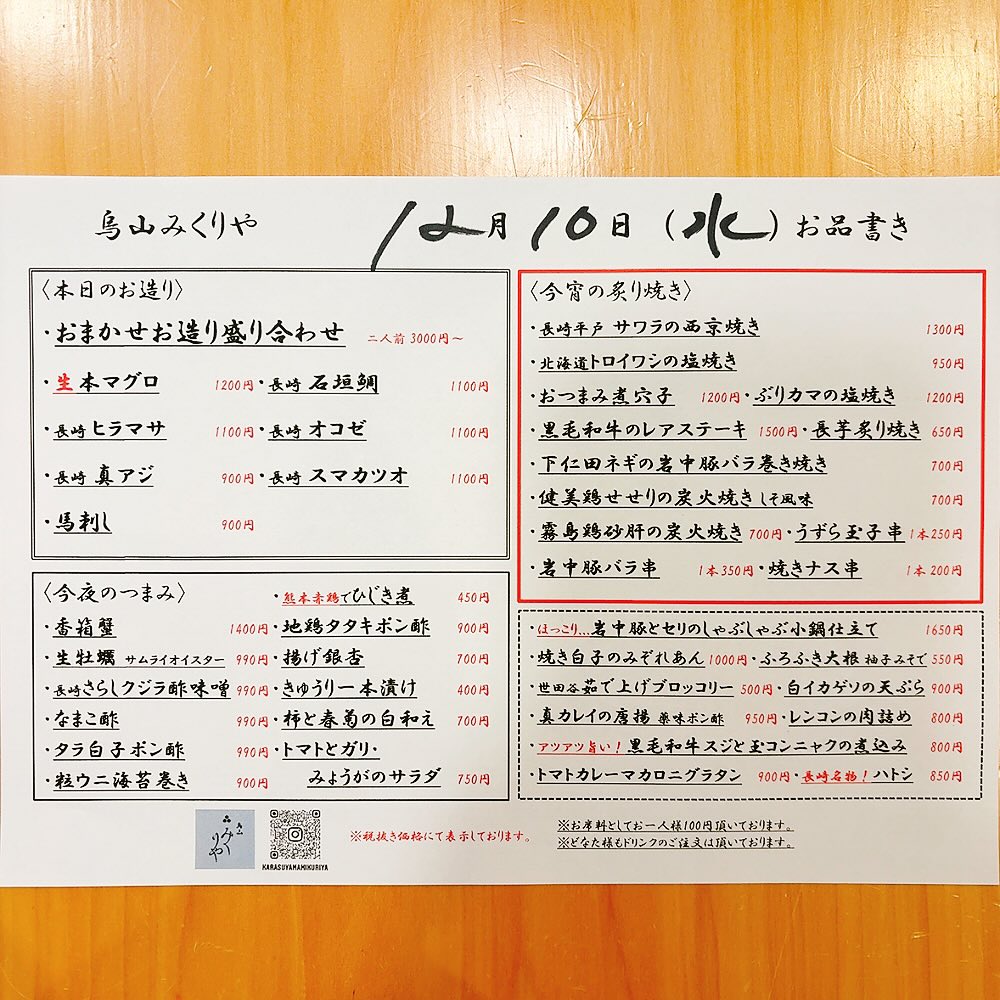 烏山みくりや 12月10日（水）お品書き
〈本日のお造り〉
・おまかせお造り盛り合わせ 二人前3000円～
・生本マグロ 1200円・長崎 石垣鯛 1100円
・長崎 ヒラマサ 1100円・長崎 オコゼ 1100円
・長崎 真アジ 900円・長崎 スマカツオ 1100円
・馬刺し 900円
〈今夜のつまみ〉
・香箱蟹 1400円
・生牡蠣 サムライオイスター 990円
・長崎さらしクジラ酢味噌 990円
・なまこ酢 990円
・タラ白子ポン酢 990円
・粒ウニ海苔巻き 900円
・熊本赤鶏でひじき煮 450円
・地鶏タタキポン酢 900円
・揚げ銀杏 700円
・きゅうり一本漬け 400円
・柿と春菊の白和え 700円
・トマトとガリ・
みょうがのサラダ 750円
〈今宵の炙り焼き〉
・長崎平戸 サワラの西京焼き 1300円
・北海道トロイワシの塩焼き 950円
・おつまみ煮穴子 1200円・ぶりカマの塩焼き 1200円
・黒毛和牛のレアステーキ 1500円・長芋炙り焼き 650円
・下仁田ネギの岩中豚バラ巻き焼き 700円
・健美鶏せせりの炭火焼き しそ風味 700円
・霧島鶏砂肝の炭火焼き 700円・うずら玉子串 1本250円
・岩中豚バラ串 1本350円・焼きナス串 1本200円
・ほっこり…岩中豚とセリのしゃぶしゃぶ小鍋仕立て 1650円
・焼き白子のみぞれあん 1000円・ふろふき大根 柚子みそで 550円
・世田谷茹で上げブロッコリー 500円・白イカゲソの天ぷら 900円
・真カレイの唐揚 薬味ポン酢 950円・レンコンの肉詰め 800円
・アツアツ旨い！黒毛和牛スジと玉コンニャクの煮込み 800円
・トマトカレーマカロニグラタン 900円・長崎名物！ハトシ 850円
みくりや
KARASUYAMAMIKURIYA
※税抜き価格にて表示しております。
※お席料としてお一人様100円頂いております。
※どなた様もドリンクのご注文は頂いております。